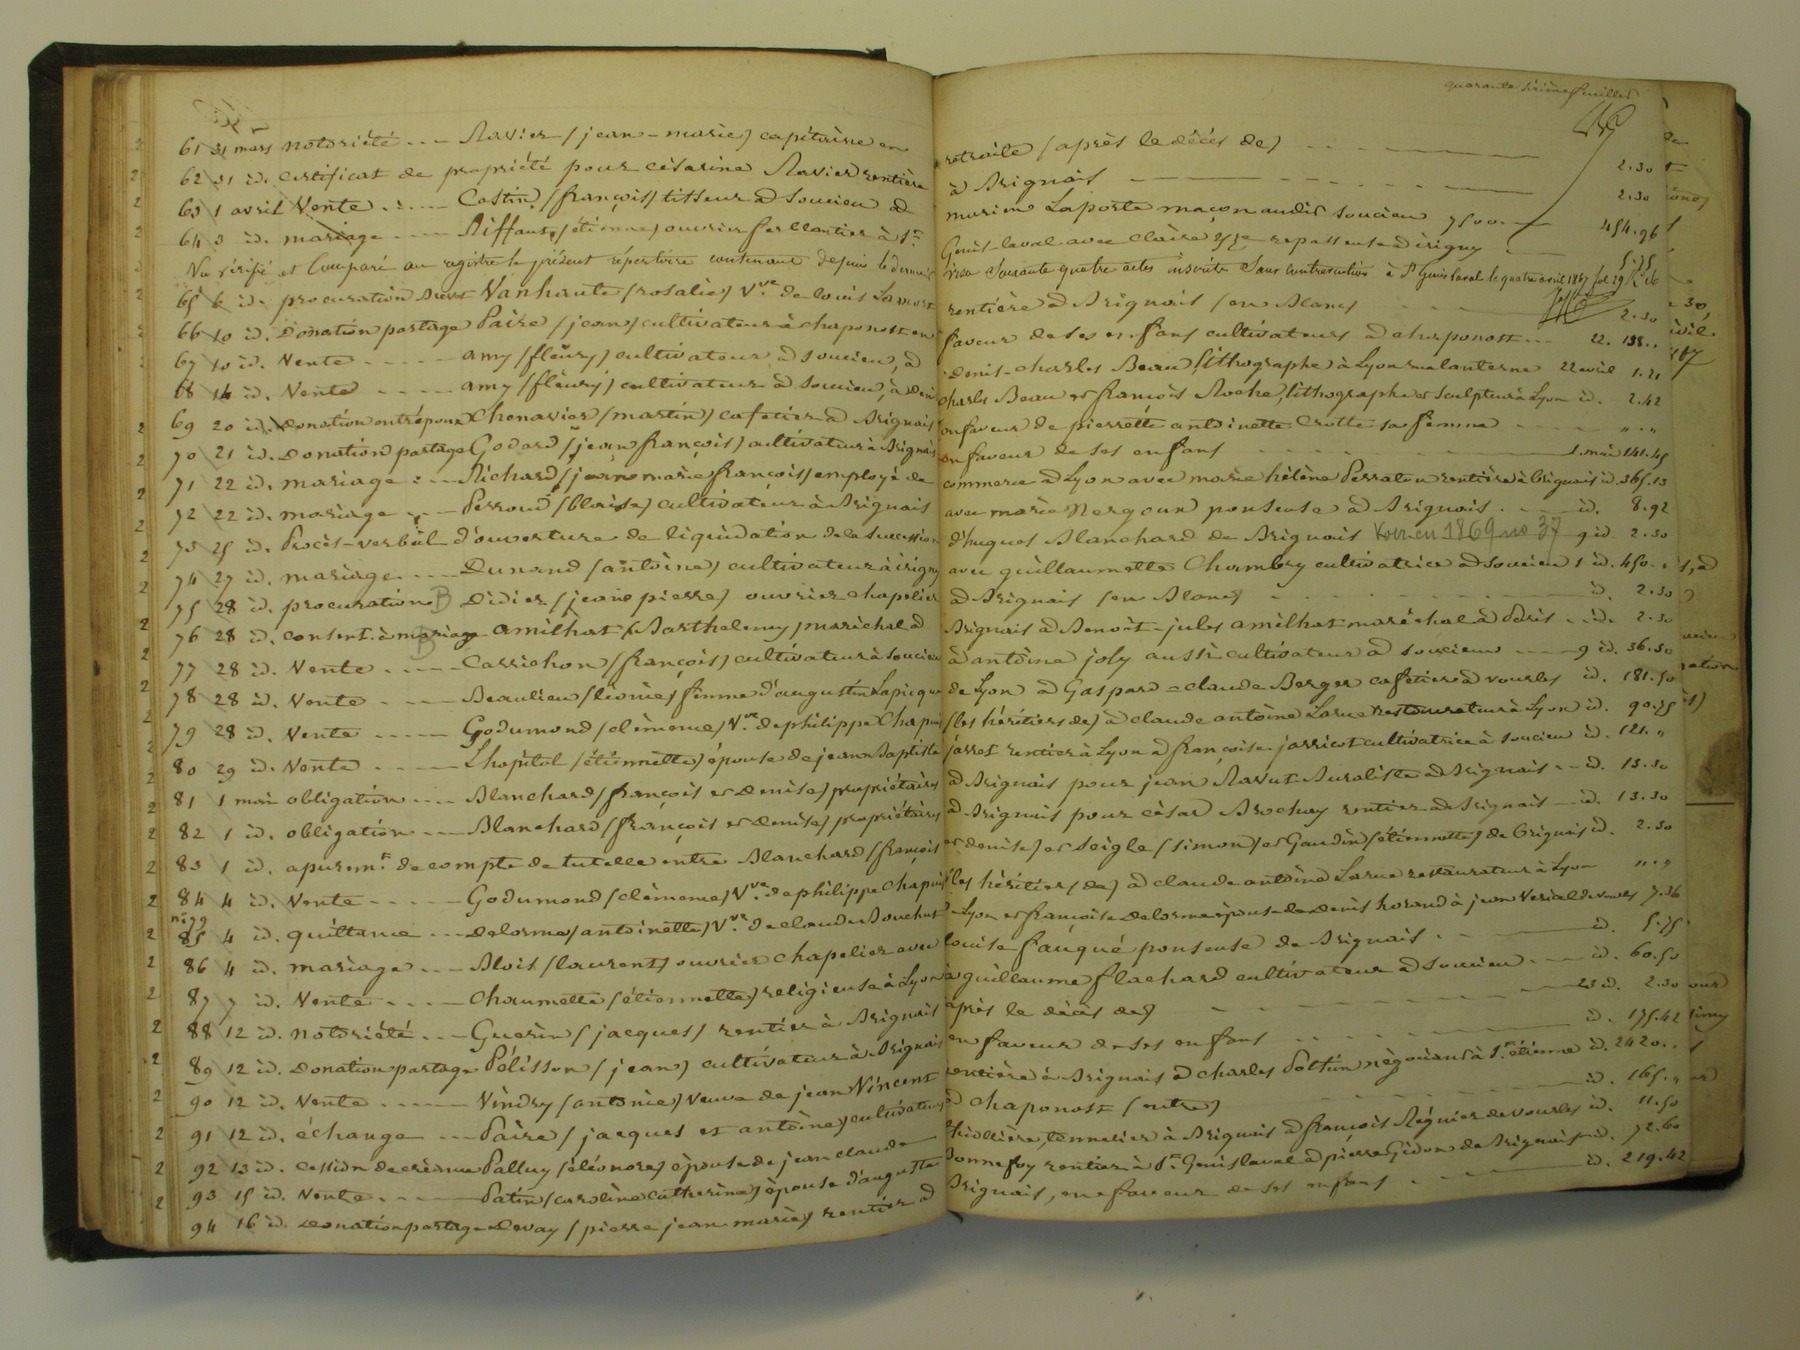 quarante sixième feuillet
61 31 mars notoriété ... Ravier (jean-marie) capitaine en retraite (après le décès de) 2.30
62 31 id. certificat de propriété pour césarine Ravier rentière à Brignais 2.30
63 1 avril Vente ... Costin (françois) tisseur à Soucieu à Laporte maçon audit Soucieu 7500 454.96
64 3 id. mariage ... Riffaut (étienne) ouvrier ferblantier à St Genis-laval avec Claire repasseuse à irigny 5.75
Vu vérifié et Comparé au registre le présent répertoire contenant depuis le dernier visa Soixante quatre actes inscrits Sans contravention à St Genis laval le quatre avril 1867 fol 29
65 6 id. procuration Vanhaute (rosalie) Vve de louis rentière à Brignais (en Blanc) 2.30
66 10 id. Donation partage Paire (jean) cultivateur à chaponost en faveur de ses enfans cultivateurs à chaponost ... 22. 138..
67 10 id. Vente ... amy (fleury) cultivateur à soucieu, à denis-charles Beau lithographe à Lyon rue lanterne 22 avril 1.21
68 14 id. Vente ... amy (fleury) cultivateur à soucieu, à denis charles Beau et françois Roche, lithographe et sculpteur à Lyon id. 2.42
69 20 id. Donation entre époux Chenavier (martin) cafetier à Brignais en faveur de pierrette antoinette Crotte sa femme ... " . "
70 21 id. Donation partage Godard (jean françois) cultivateur à Brignais en faveur de ses enfans 1 mai 141.45
71 22 id. mariage ... Richard (jean marie françois) employé de commerce à Lyon avec marie hélène Perraton rentière à brignais id. 365.13
72 22 id. mariage ... Perroud (blaise) cultivateur à Brignais avec marie Nergoun ponseuse à Brignais. id. 8.92
73 25 id. Procès-verbal d'ouverture de liquidation de la succession d'hugues Blanchard de Brignais Voir en 1869 no 37 9 id 2.30
74 27 id. mariage ... Dunand (antoine) cultivateur à irigny avec guillaumette Chambry cultivatrice à Soucieu 1 id. 450..
75 28 id. procuration B Didier (jean pierre) ouvrier chapelier à Brignais (en Blanc) id. 2.30
76 28 id. consent. à mariage B amilhat (Barthelemy) maréchal à Brignais à Benoît-jules amilhat maréchal à Paris .. id. 2.30
77 28 id. Vente ... Carrichon (françois) cultivateur à Soucieu à antoine joly aussi cultivateur à soucieu 9 id. 36.30
78 28 id. Vente ... Beaulieu (léonie) femme d'augustin Lapicque de Lyon à Gaspard-claude Berger cafetier à vourles id. 181.50
79 28 id. Vente ... Godumond (clémence) Vve de philippe Chapuis (les héritiers de) à claude antoine Larue restaurateur à Lyon id. 90.75
80 29 id. Vente ... Lhopital (étiennette) épouse de jean Baptiste jarret rentier à Lyon à françoise jarricot cultivatrice à soucieu id. 121. "
81 1 mai obligation ... Blanchard (françois et denise) propriétaires à Brignais pour jean Ravut Buraliste à Brignais ... id. 13.30
82 1 id. obligation ... Blanchard (françois et denise) propriétaires à Brignais pour césar Brochay rentier à Brignais ... id. 13.30
83 1 id. apuremt de compte de tutelle entre Blanchard (françois et denise) et Seigle (simon) et Gaudin (étiennette) de brignais id. 2.30
84 4 id. Vente ... Godumond (clémence) Vve de philippe Chapuis (les héritiers de) à claude antoine Larue restaurateur à Lyon " . "
no 79
85 4 id. quittance ... delorme (antoinette) Vve de claude Bouchut Lyon et françoise delorme épouse de denis horand à jean Verial de vourles 7.36
86 4 id. mariage ... Blois (laurent) ouvrier chapelier avec louise fauqué ponseuse de Brignais. id. 5.75
87 7 id. Vente ... Chaumette (étiennette) religieuse à Lyon à guillaume flachard cultivateur à Soucieu id. 60.50
88 12 id. notoriété ... Guerin (jacques) rentier à Brignais après le décès de) 23 id. 2.30
89 12 id. Donation partage Pélisson (jean) cultivateur à Brignais en faveur de ses enfans id. 175.42
90 12 id. Vente ... Vindry (antonie) veuve de jean Vincent rentière à Brignais à charles Pottin négociant à St étienne id. 2420..
91 12 id. échange ... Paire (jacques et antoine) cultivateurs à chaponost (entre) id. 165. "
92 13 id. Cession de créance Palluy (éléonore) épouse de jean claude thiollière tonnelier à Brignais à françois Régnier de vourles id. 11.50
93 15 id. Vente ... Patin (caroline catherine) épouse d'auguste Bonnefoy rentier à St Genis laval à pierre Gidon de Brignais id. 72.60
94 16 id. Donation partage Devay (pierre jean marie) rentier à Brignais, en faveur de ses enfans id. 219.42